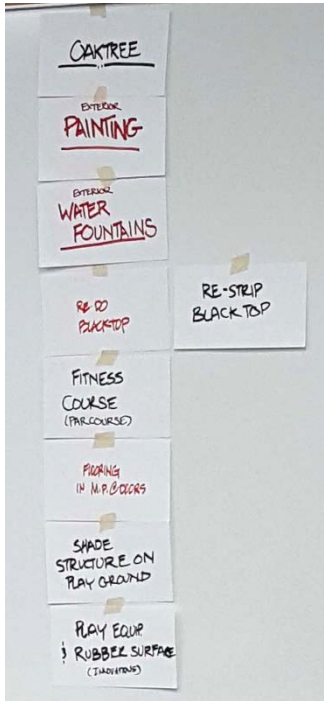 OAKTREE
EXTERIOR
PAINTING
EXTERIOR
WATER
FOUNTAINS
RE DO
BLACKTOP
RE-STRIP
BLACKTOP
FITNESS
COURSE
(PARCOURSE)
FLOORING
IN M.P. @ DOORS
SHADE
STRUCTURE ON
PLAY GROUND
PLAY EQUIP.
& RUBBER SURFACE